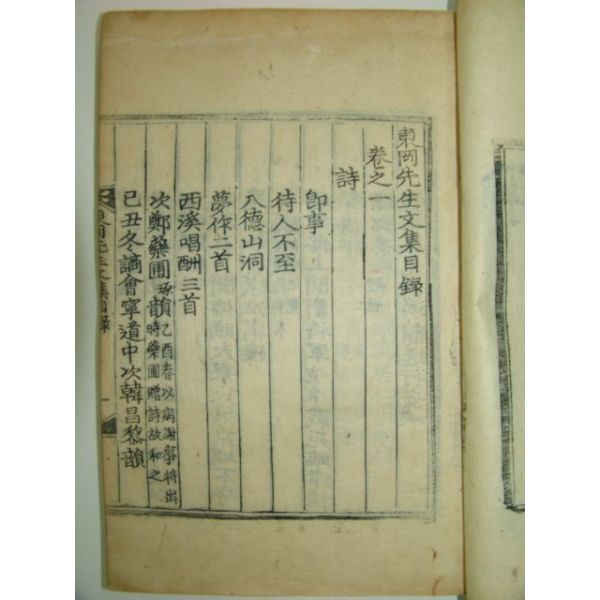 東岡先生文集目録
卷之一
詩
卽事
待人不至
入德山洞
夢作二首
西溪唱酬三首
次鄭藥圃韻 乙酉春以病謝事將出
時藥圃贈詩故和之
己丑冬謫會寧道中次韓昌黎韻
東岡先生文集目録